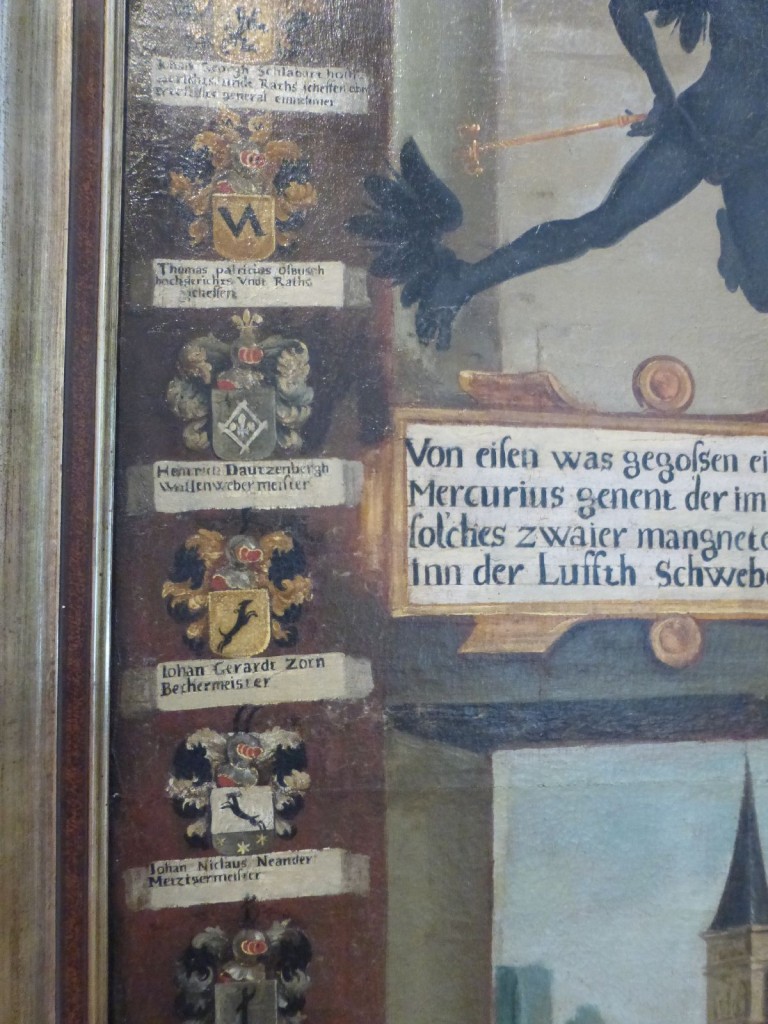 Georgh Schlabart hoch
gerichts unde Raths scheffen
general einnehmer
Thomas patricius Olbusch
hochgerichts Vndt Raths
scheffen
Heinrich Dautzenbergh
Wullenwebermeister
Iohan Gerardt Zorn
Bechermeister
Iohan Niclaus Neander
Metzigermeister
Von eisen was gegossen ei
Mercurius genent der im
solches zwaier mangneto
Inn der Luffth Schwebe